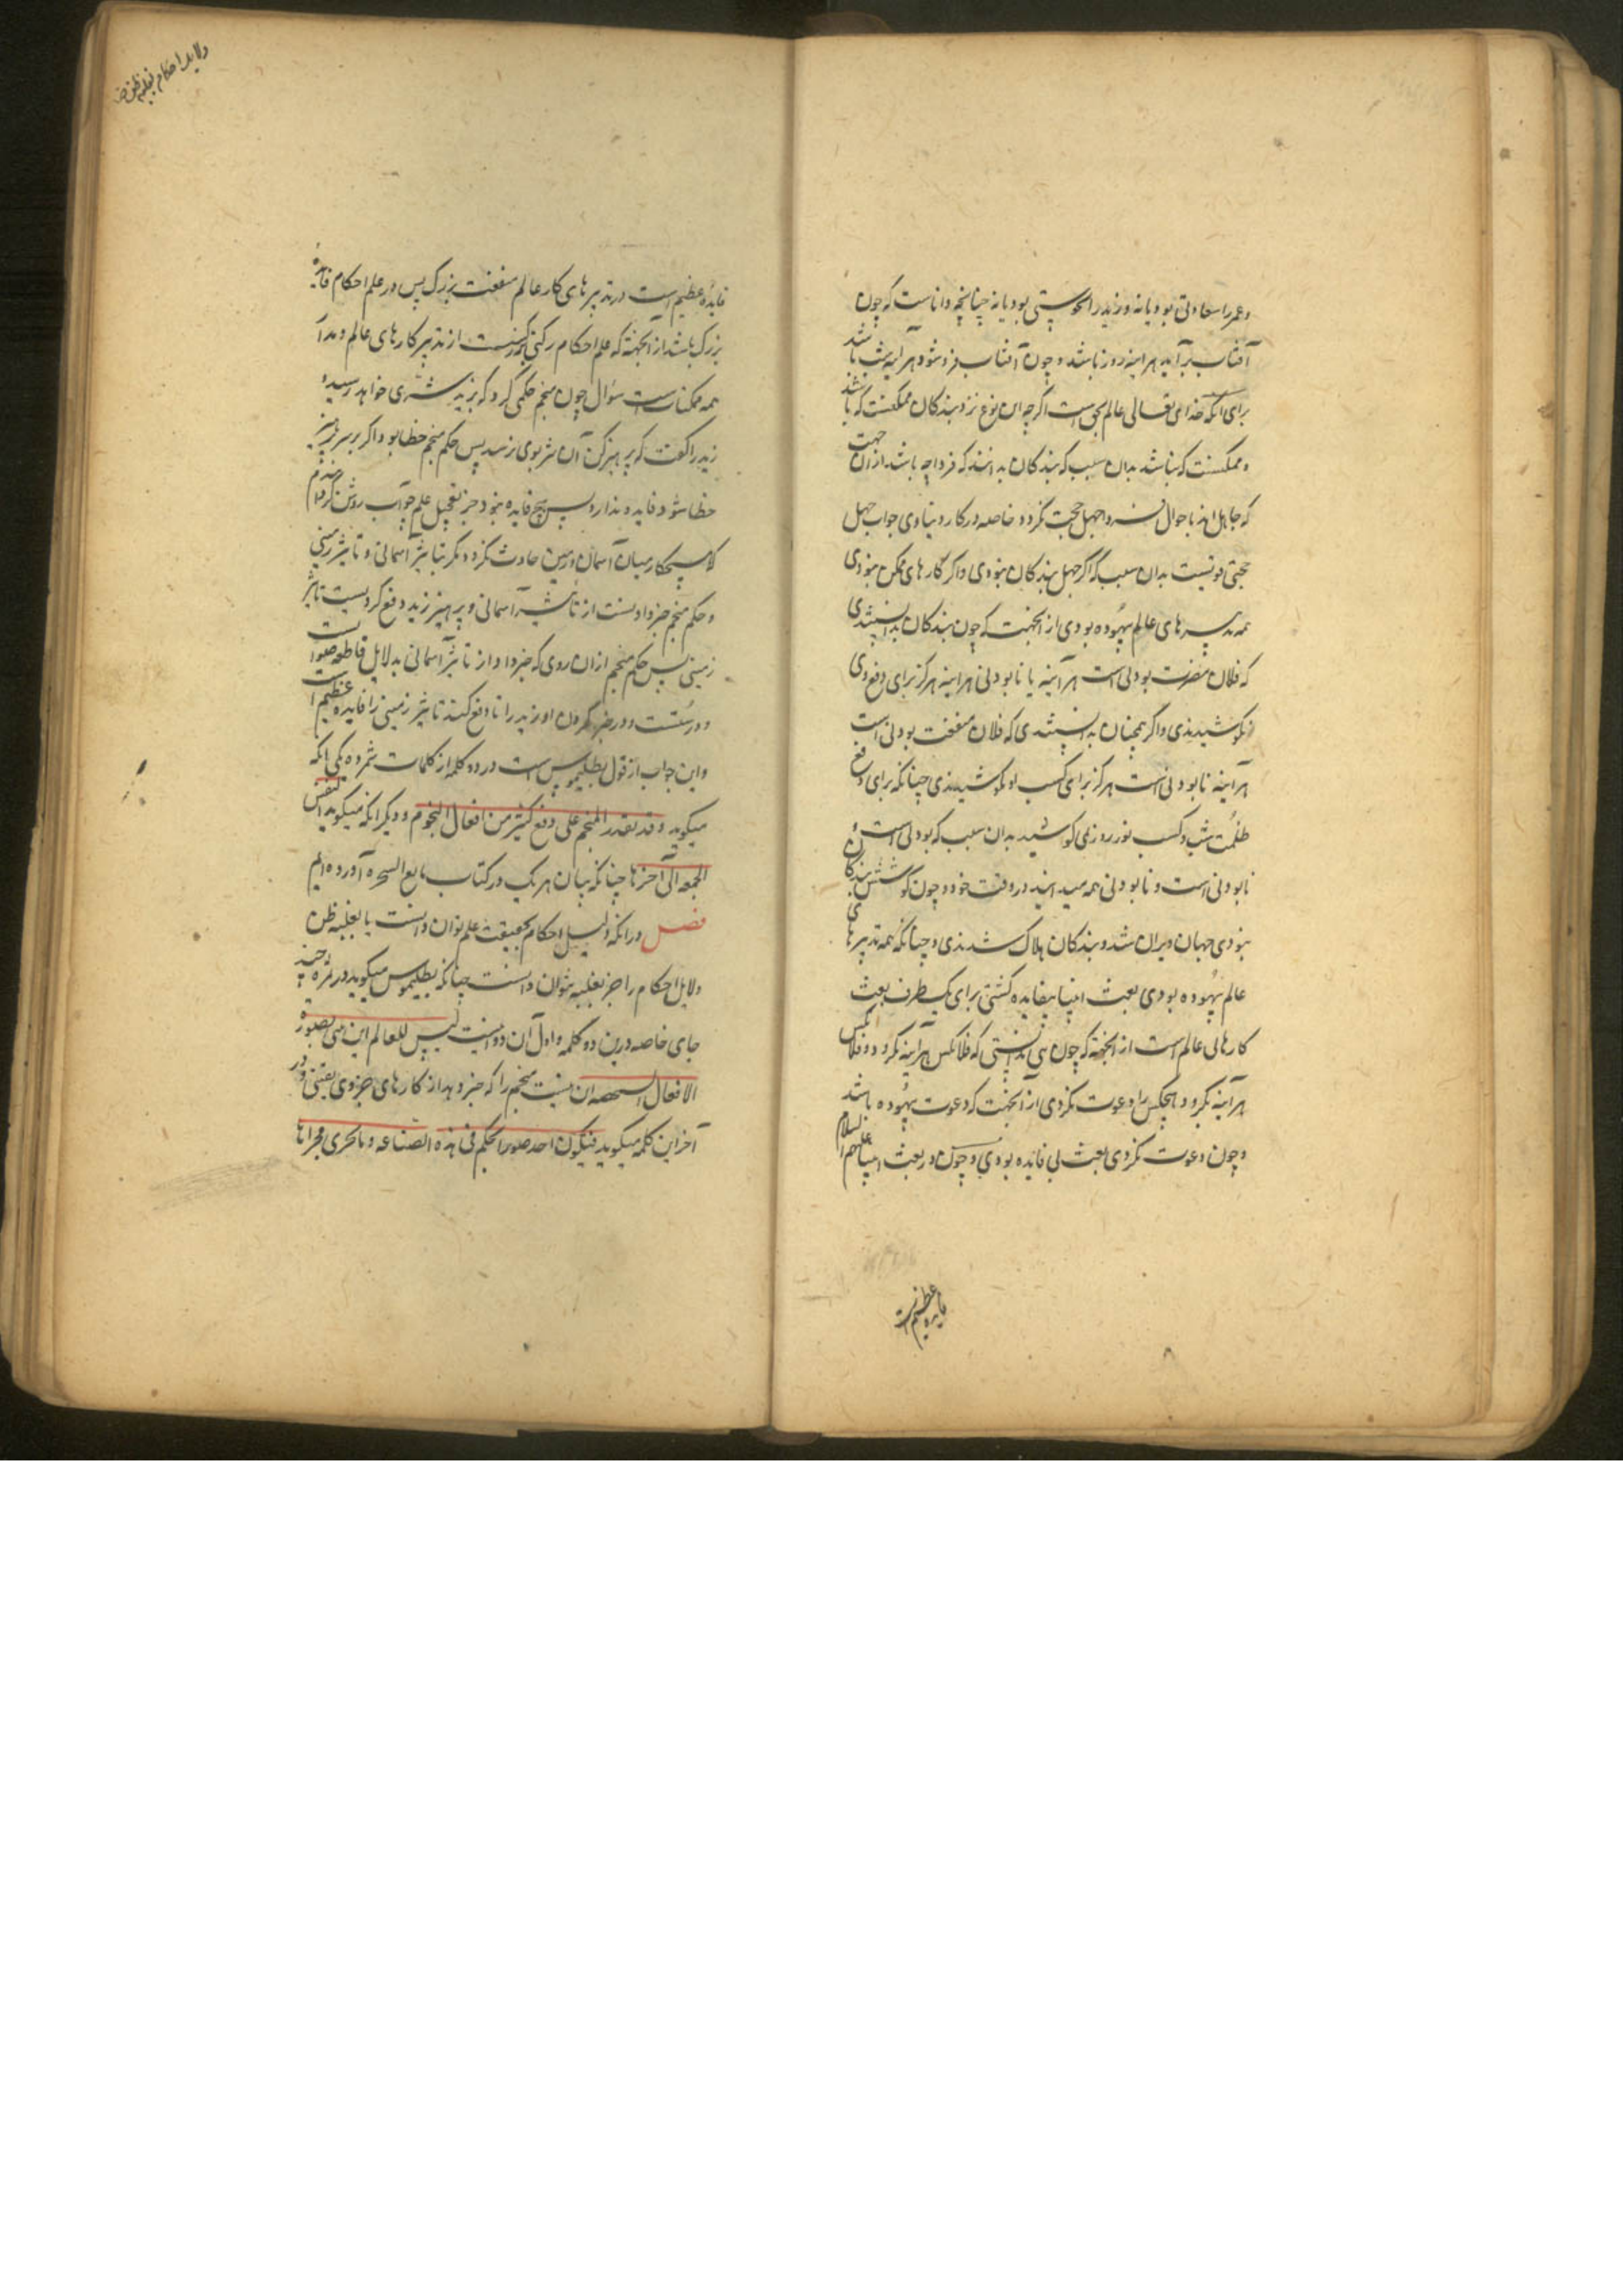 و عمر را سعادتی بود یا نه و زید را نحوستی بود یا نه چنانچه داناست که چون
آفتاب برآید هراینه روز باشد و چون آفتاب فرو شود هرآینه شب باشد
برای آنکه خدای تعالی عالم بحق است اگرچه این نوع نزد بندگان ممکنست که باشد
و ممکنست که نباشد بدان سبب که بندگان بدانند که فردا چه باشد از ان جهت
که جاهل اند باحوال فردا جهل حجت نگردد خاصه در کار دنیاوی جواب جهل
حجتی قویست بدان سبب که اگر جهل بندگان نبودی و اگر کارهای ممکن نبودی
همه تدبیرهای عالم بیهوده بودی از انجهت که چون بندگان بدانستندی
که فلان مضرت بودنی است هرآینه یا نابودنی هراینه هرگز برای دفع وی
نکوشیدندی و اگر همچنان بدانستندی که فلان منفعت بودنی است
هرآینه نابودنی است هرگز برای کسب او نکوشیدندی چنانکه برای دفع
ظلمت شب و کسب نور روز نمی کوشید بدان سبب که بودنی است و
نابودنی است و نابودنی همه میدانند در وقت خود و چون کوشش بندگان
نبودی جهان ویران شد و بندگان هلاک شدندی و چنانکه همه تدبیرهای
عالم بیهوده بودی بعثت انبیا بیفایده گشتی برای یک طرف بعث
کارهای عالم است از انجهة که چون نبی بدانستی که فلانکس هرآینه نگرود و فلانکس
هرآینه بگرود هیچکس را دعوت نکردی از آنجهت که دعوت بیهوده باشد
و چون دعوت نکردی بعثت بی فایده بودی و چون در بعث انبیا علیهم السلام
فایده عظیم است
دلایل احکام بغلبه ظن
فایده عظیم است در تدبیرهای کار عالم منفعت بزرگ پس در علم احکام فایده
بزرگ باشد از انجهة که علم احکام رکنی بزرگست از تدبیر کارهای عالم و مدا
همه ممکنات است سؤال چون منجم حکمی کرد که بزید شری خواهد رسید و
زید را گفت که پرهیز کن آن شر بوی نرسد پس حکم منجم خطا بود و اگر بر سر پرهیز
خطا شود فایده ندارد پس هیچ فایده نبود جز تعجیل علم جواب روشن کردم
که هیچ کار میان آسمان و زمین حادث نگردد مگر بتاثیر آسمانی و تاثیر زمینی
و حکم منجم خبر دادنست از تاثیر آسمانی و پرهیز زید دفع کردنست تاثیر
زمینی پس حکم منجم ازان روی که خبر داد از تاثیر آسمانی بدلایل قاطعه صوابست
و درستست و در خبر کردن او زید را تا دفع کند تاثیر زمینی را فایده عظیم است
و این جواب از قول بطلیموس است در دو کلمه از کلمات ثمره یکی انکه
میگوید و قد یقدر المنجم علی دفع کثیر من افعال النجوم و دیگر انکه میگوید النفس
الی آخرها چنانکه بیان هر یک در کتاب آورده ایم
فصل در انکه دلیل احکام بحقیقت علم توان دانست یا بغلبه ظن
دلایل احکام را جز بغلبه نتوان دانست چنانکه بطلیموس میگوید در ثمره چند
جای خاصه درین دو کلمه و اول آن دو اینست لیس للعالم ان ینبی بصورة
الافعال الشخصه ان نیست منجم را که خبر دهد از کارهای جزوی یقینی و در
آخر این کلمه میگوید فیکون احد صور الحکم فی هذه الصناعه و بالحری مجراها